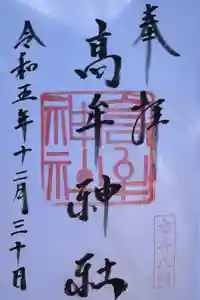 奉拝
高牟神社
令和五年十二月三十日